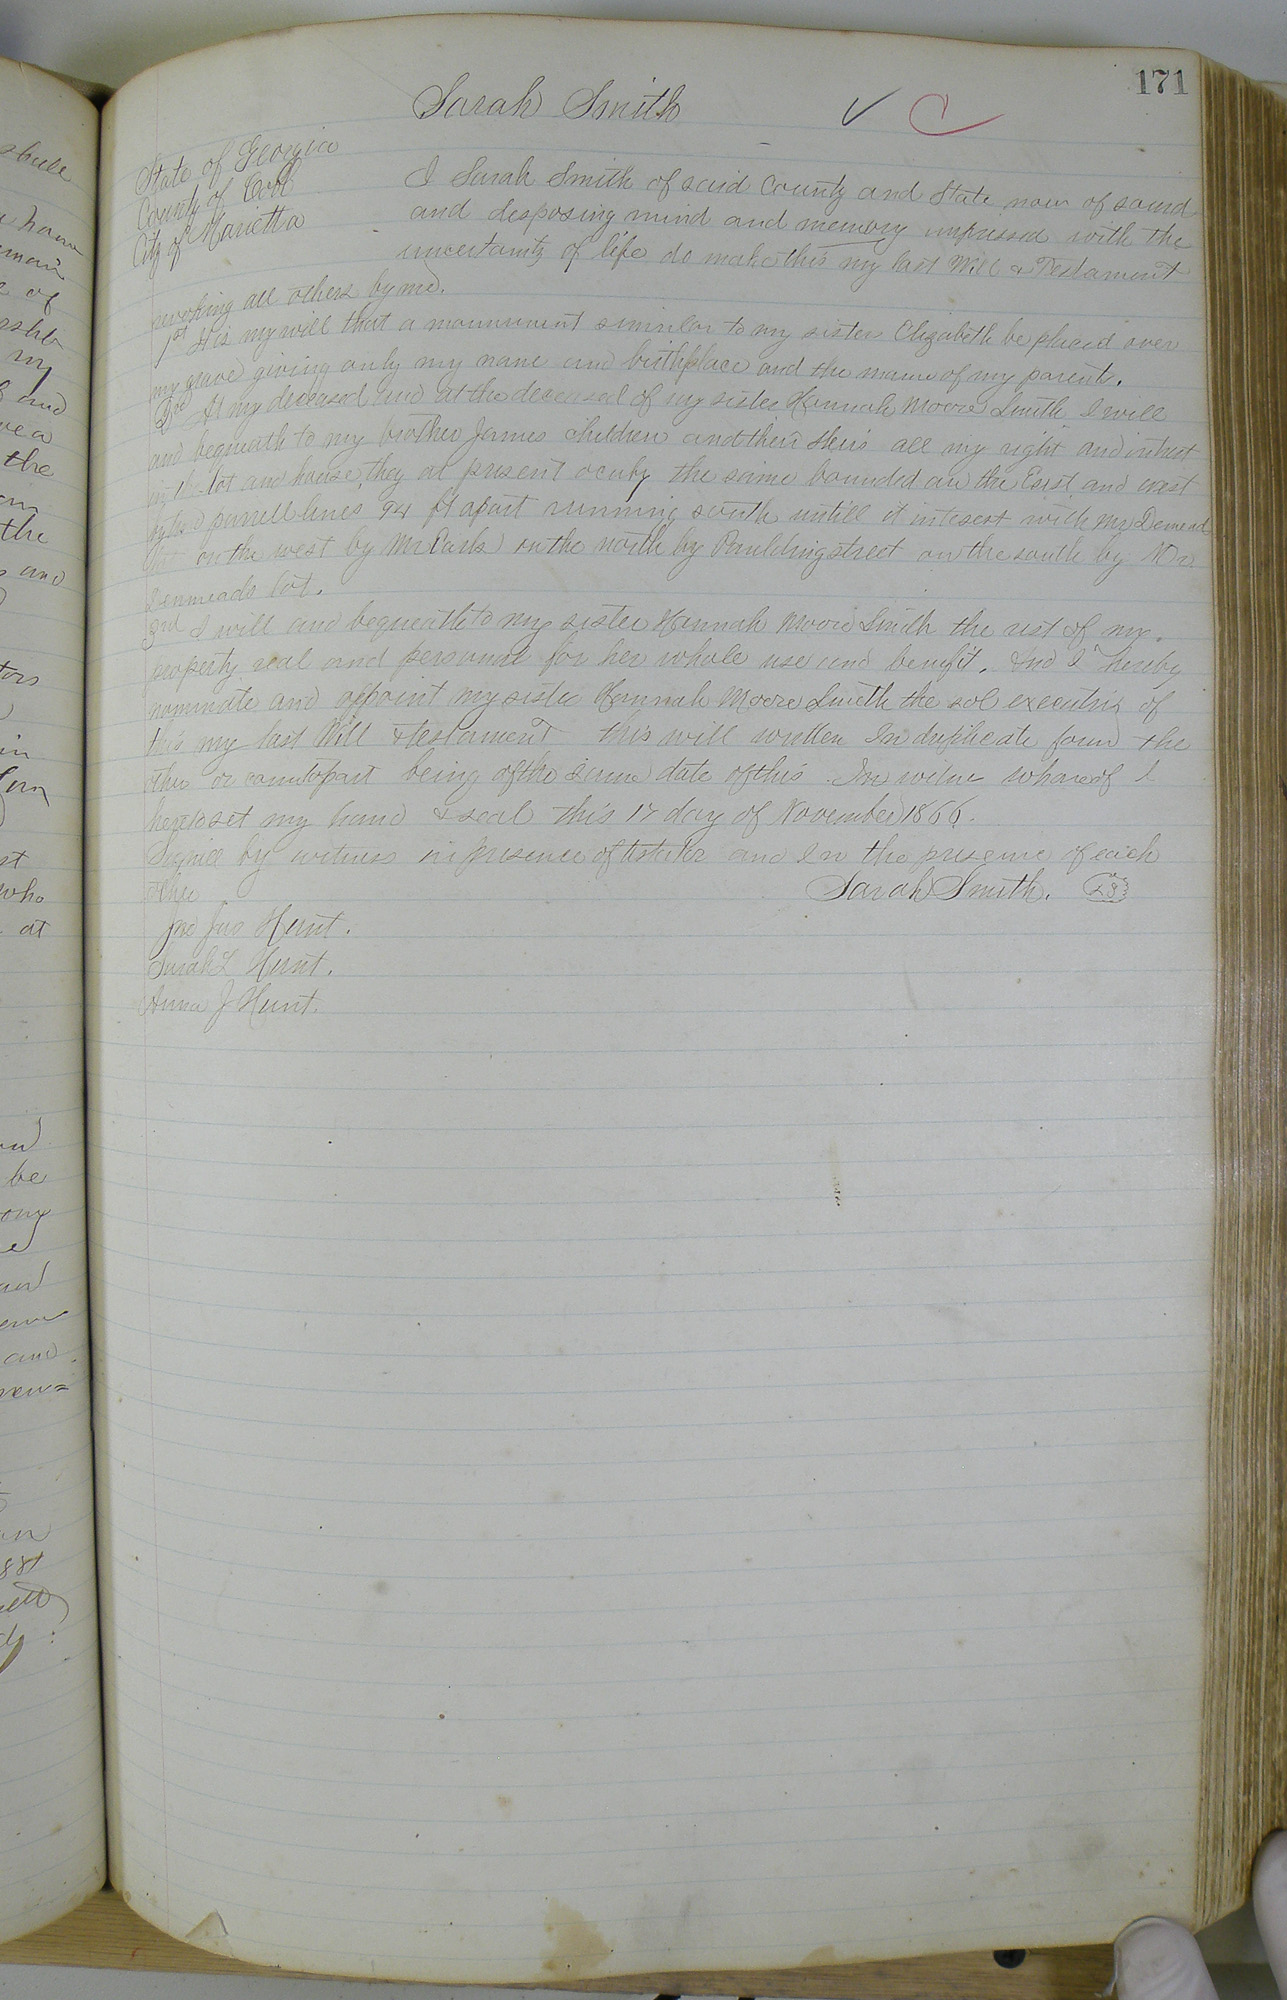 171
Sarah Smith
State of Georgia
County of Cobb
City of Marietta
I Sarah Smith of said County and State now of sound
and desposing mind and memory impressed with the
uncertainty of life do make this my last Will & Testament
revoking all others by me.
1st It is my will that a monument similar to my sister Elizabeth be placed over
my grave giving only my name and birthplace and the name of my parents.
2nd At my deceased and at the deceased of my sister Hannah Moore Smith I will
and bequeath to my brother James children and their Heirs all my right and intrest
in the lot and house they at present ocupy the same bounded on the East and west
by two parrell lines 94 ft apart running south untill it intersest with Mr Denmeads
lot on the west by Mr Parks on the north by Paulding street on the south by Mr
Denmeads lot.
3rd I will and bequeath to my sister Hannah Moore Smith the rest of my
property real and personal for her whole use and benefit. And I hereby
nominate and appoint my sister Hannah Moore Smith the sol executrix of
this my last Will & testament this will written In duplicate form the
other or countopart being of the same date of this. In witne whareof I
hereto set my hand & seal this 17 day of November 1866.
by witness in presence of testator and In the presence of each
other
Sarah Smith. LS
Jno Jas Hunt.
Sarah L Hunt.
Anna J Hunt.
shall
have
of
my
and
the
the
and
in
who
at
be
and